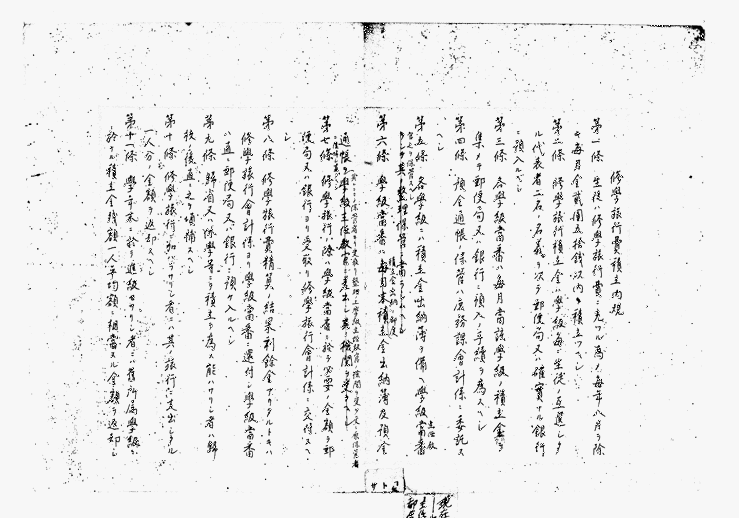 修學旅行費積立内規
第一條 生徒ハ修學旅行費ニ充ツル為メ毎年八月ヲ除
キ毎月金貳圓五拾錢以内ヲ積立ツベシ
第二條 修學旅行積立金ハ學級毎ニ生徒ノ互選シタ
ル代表者二名ノ名義ヲ以テ郵便局又ハ確實ナル銀行
ニ預入ルベシ
第三條 各學級當番ハ毎月當該學級ノ積立金ヲ
集メテ郵便局又ハ銀行ニ預入ノ手續ヲ為スベシ
第四條 預金通帳ノ保管ハ庶務課會計係ニ委託ス
ベシ
第五條 各學級ニハ積立金出納簿ヲ備ヘ學級當番
主任教
積立金出納ノ都度
第六條 學級當番ハ毎月末積立金出納簿及預金
通帳ヲ學級主任教官ニ差出シ其ノ檢閲ヲ受クベシ
第七條 修學旅行ノ際ハ學級當番ニ於テ必要ノ金額ヲ郵
便局又ハ銀行ヨリ受取リ修學旅行會計係ニ交付スベ
シ
第八條 修學旅行費精算ノ結果剩餘金アリタルトキハ
修學旅行會計係ヨリ學級當番ニ還付シ學級當番
ハ直ニ郵便局又ハ銀行ニ預ケ入ルベシ
第九條 歸省又ハ休學等ニテ積立ヲ為ス能ハザリシ者ハ歸
校ノ後直ニ之ヲ填補スベシ
第十條 修學旅行ニ加ハラザリシ者ニハ其ノ旅行ニ支出シタル
一人分ノ金額ヲ返却スベシ
第十一條 學年末ニ於テ進級セザリシ者ニハ舊所屬學級ニ
於ケル積立金殘額一人平均額ニ相當スル金額ヲ返却シ